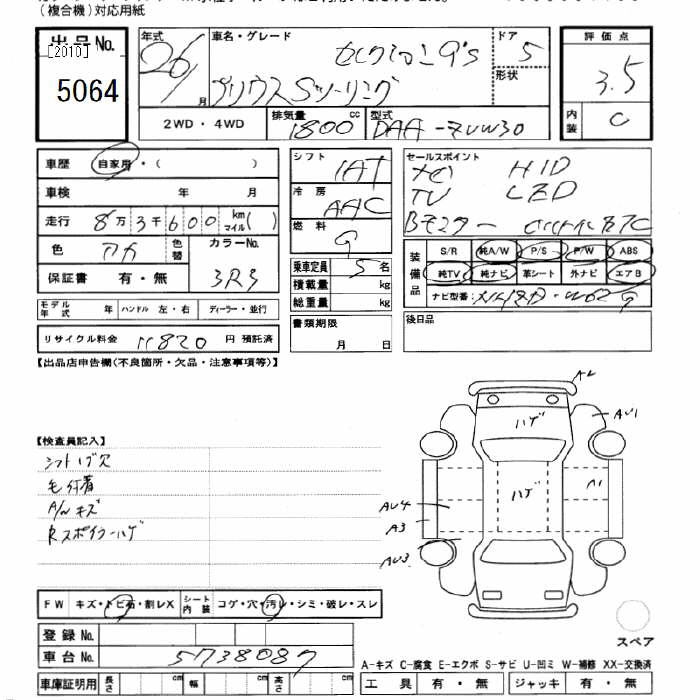 (複合機)対応用紙
出品No. [2010] 5064
年式 26 月
車名・グレード セレクション G's
プリウス Sツーリング
ドア 5
形状
評価点 3.5
内装 C
2WD・4WD 排気量 1800 cc 型式 DAA-ZVW30
車歴 自家用・( )
車検 年 月
走行 8万3千600 km マイル( )
色 アカ 色替 カラーNo. 3R3
保証書 有・無
モデル年式 年 ハンドル 左・右 ディーラー・並行
リサイクル料金 11820 円 預託済
シフト IAT
冷房 AAC
燃料 G
乗車定員 5 名
積載量 kg
総重量 kg
書類期限
月 日
セールスポイント
HID
TV LED
Bモニター
装備品 S/R 純A/W P/S P/W ABS
純TV 純ナビ 革シート 外ナビ エアB
ナビ型番:
後日品
【出品店申告欄(不良箇所・欠品・注意事項等)】
【検査員記入】
シフトハゲ穴
毛付着
A/Wキズ
Rスポイラーハゲ
AU1
ハゲ
A1
ハゲ
AU4
A3
AU3
スペア
FW キズ・トビ石・割レX シート内装 コゲ・穴・汚レ・シミ・破レ・スレ
登録No.
車台No. 5738087
車庫証明用 長さ cm 幅 cm 高さ cm
A-キズ C-腐食 E-エクボ S-サビ U-凹ミ W-補修 XX-交換済
工具 有・無 ジャッキ 有・無